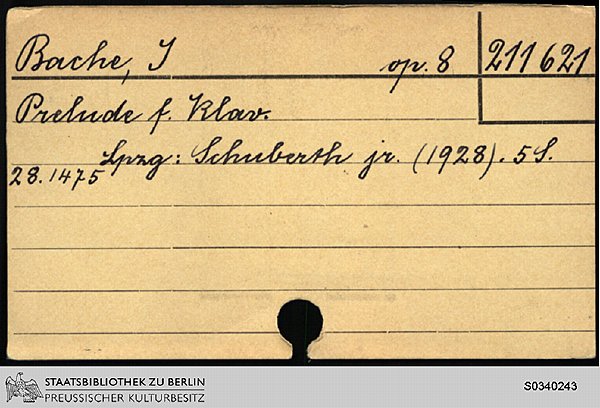 Bache, J op. 8 211621
Prelude f. Klav.
Lpzg: Schuberth jr. (1928). 5 S.
28.1475
STAATSBIBLIOTHEK ZU BERLIN
PREUSSISCHER KULTURBESITZ
S0340243